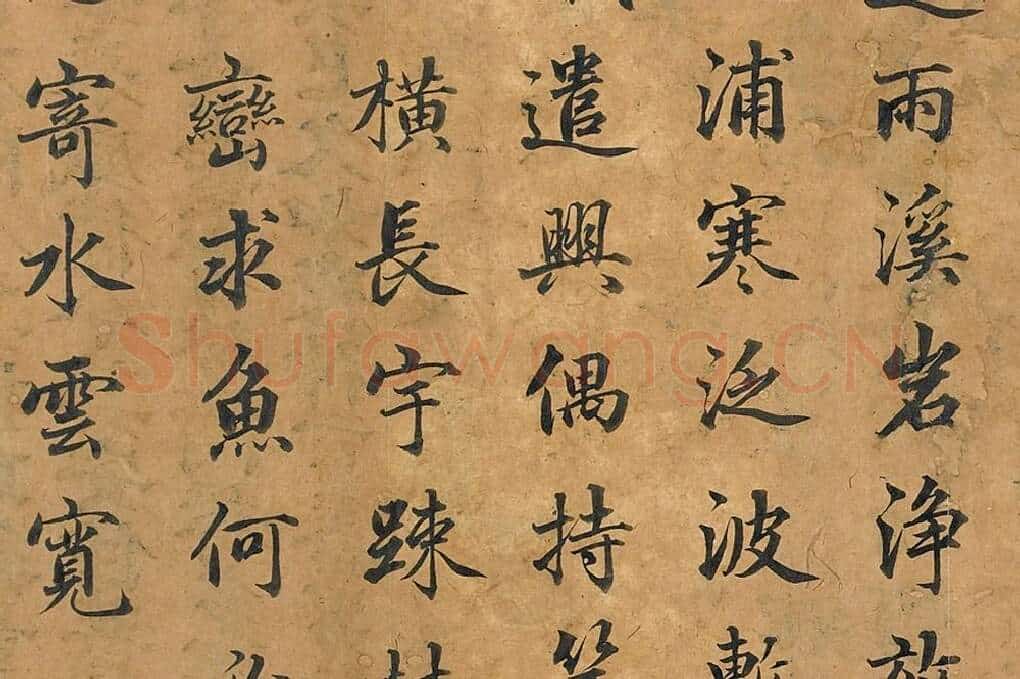 雨溪岩浄放
浦寒泛波暫
遣興偶持竿
横長宇踈林
巒求魚何
寄水雲寬
Shufawang.CN